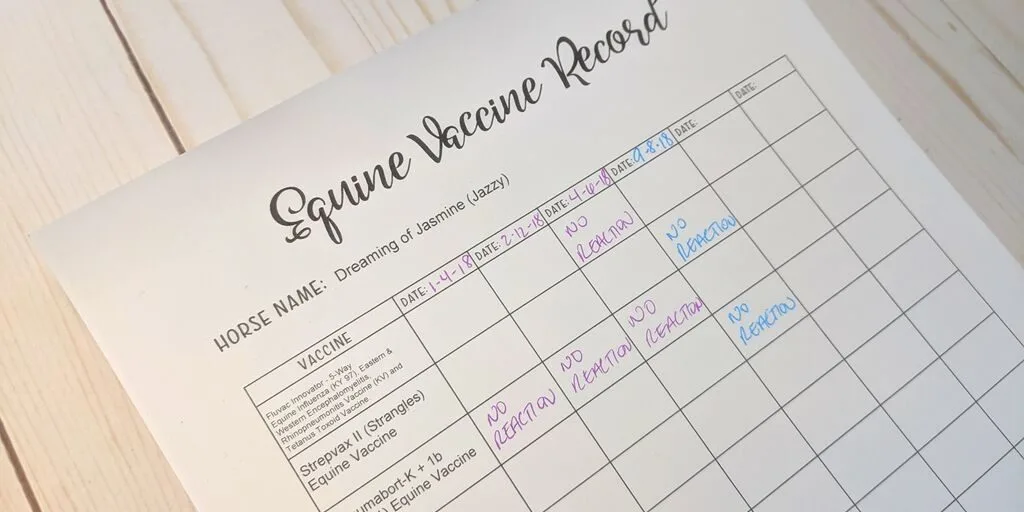 Equine Vaccine Record
HORSE NAME: Dreaming of Jasmine (Jazzy)
VACCINE
DATE: 1-4-18
DATE: 2-12-18
DATE: 4-6-18
DATE: 9-8-18
DATE:
DATE:
Fluvac Innovator - 5-Way
Equine Influenza (KY 97), Eastern &
Western Encephalomyelitis,
Rhinopneumonitis Vaccine (KV) and
Tetanus Toxoid Vaccine
NO
REACTION
NO
REACTION
Strepvax II (Strangles)
Equine Vaccine
NO
REACTION
NO
REACTION
NO
REACTION
NO
REACTION
umabort-K + 1b
) Equine Vaccine